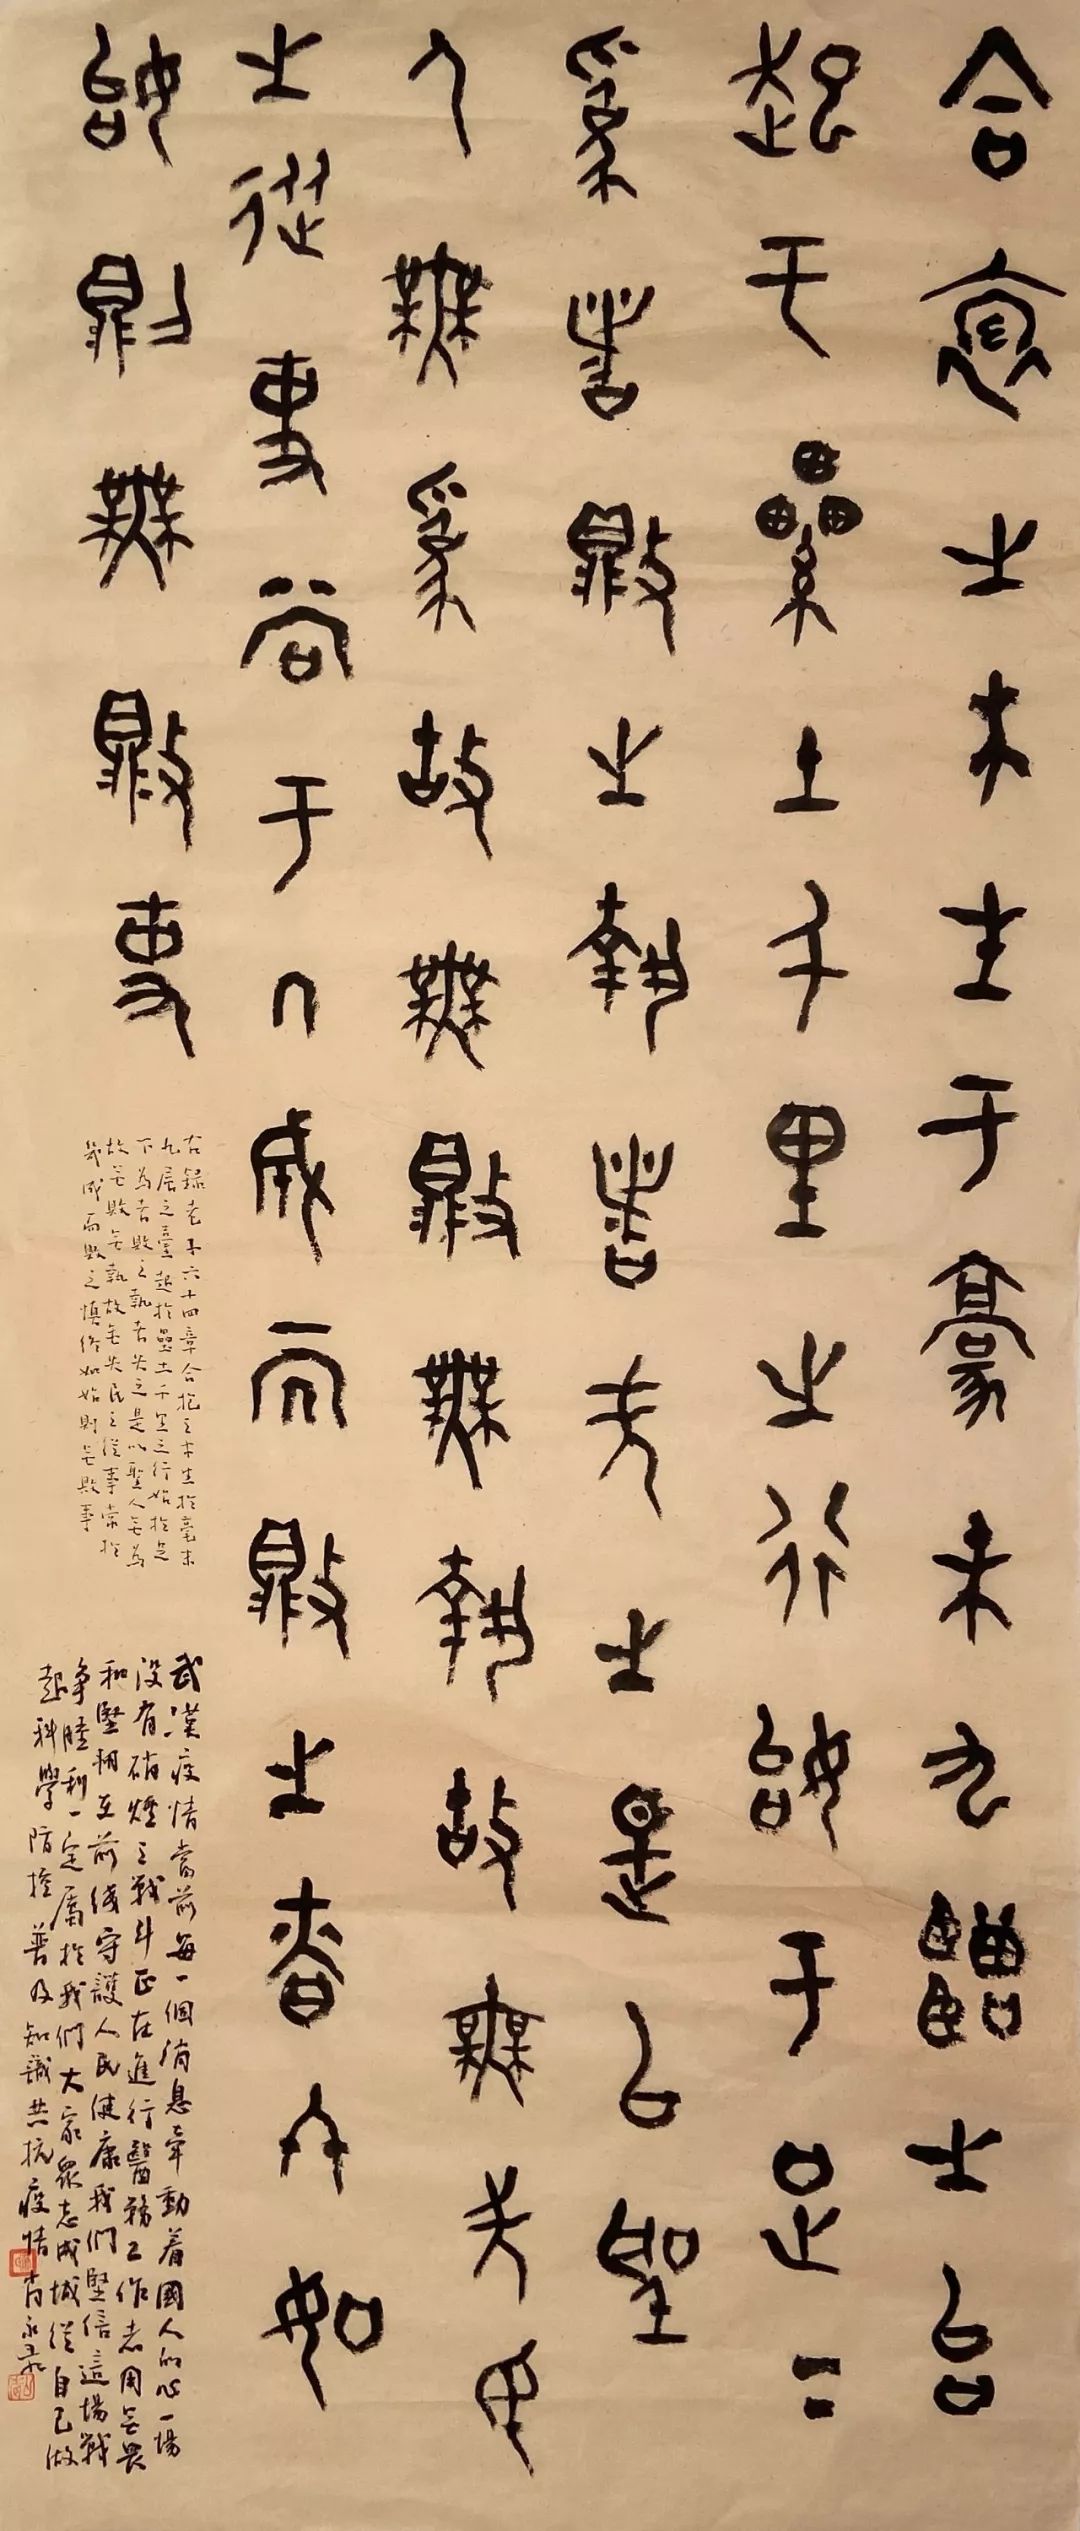 合抱之木生于豪末九層之台
起于累土千里之行始于足下
為者敗之執者失之是以聖
人無為故無敗無執故無失民
之從事常于幾成而敗之慎終如
始則無敗事
右錄老子六十四章合抱之木生於毫末
九層之臺起於壘土千里之行始於足
下為者敗之執者失之是以聖人无為
故无敗无執故无失民之從事常於
幾成而敗之慎終如始則无敗事
武漢疫情當前每一個消息牽動着國人的心一場
没有硝煙之戰斗正在進行醫務工作者用无畏
和堅韌在前线守護人民健康我們堅信這場戰
爭勝利一定屬於我們大家眾志成城從自己做
起科學防控普及知識共抗疫情肖永